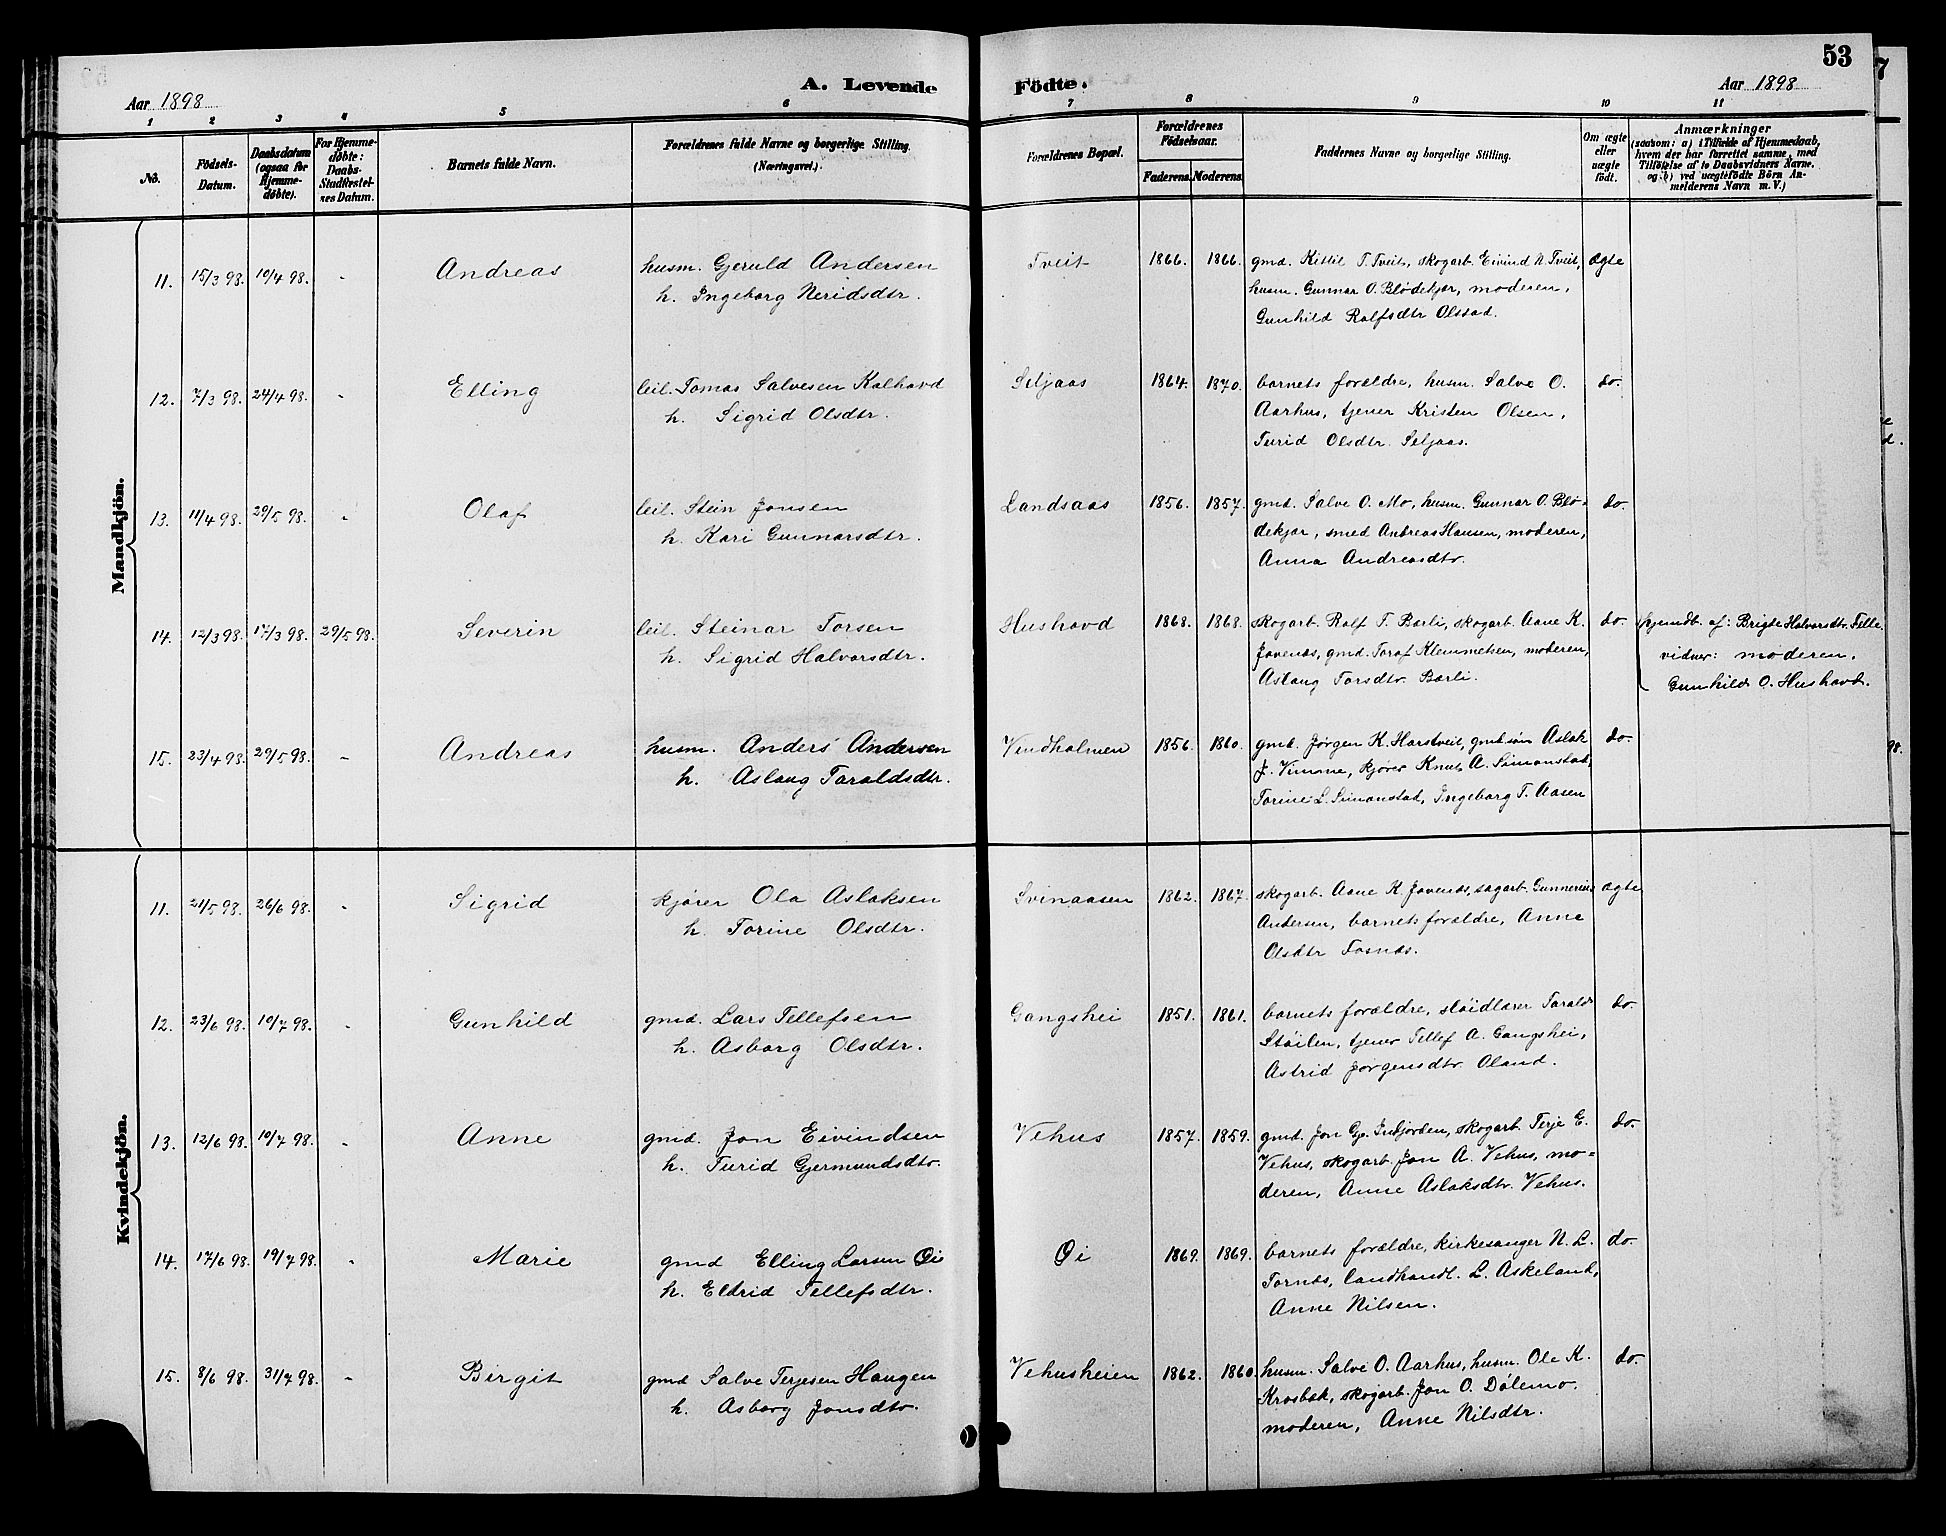 53
Aar 1898
A. Levende Födte.
Aar 1898
1 2 3 4 5 6 7 8 9 10 11
No.
Födsels-Datum.
Daabsdatum (ogsaa for Hjemmedöbte).
For Hjemmedöbte: Daabs-Stadfæstelsens Datum.
Barnets fulde Navn.
Forældrenes fulde Navne og borgerlige Stilling. (Næringsvei.)
Forældrenes Bopæl.
Forældrenes Födselsaar.
Faderens. Moderens.
Faddernes Navne og borgerlige Stilling.
Om ægte eller uægte födt.
Anmærkninger
(saasom: a) i Tilfælde af Hjemmedaab, hvem der har forrettet samme, med Tilföielse af to Daabsvidners Navne, og b) ved uægtefödte Börn Anmelderens Navn m. V.)
Mandkjön.
11. 15/3 98. 10/4 98. - Andreas husm. Gjeruld Andersen Tveit 1866. 1866. gmd. Kittil T. Tveit, skogarb. Eivind N. Tveit, ægte
h. Ingeborg Neridsdtr. husm. Gunnar O. Blödekjær, moderen,
Gunhild Rolfsdtr Olstad.
12. 7/3 98. 24/4 98. - Elling leil. Tomas Salvesen Kalhovd Seljaas 1864. 1870. barnets forældre, husm. Salve O. do.
h. Sigrid Olsdtr. Aarhus, tjener Kristen Olsen,
Turid Olsdtr. Seljaas.
13. 11/4 98. 29/5 98. - Olaf leil. Stein Jonsen Landsaas 1856. 1857. gmd. Salve O. Mo, husm. Gunnar O. Blö- do.
h. Kari Gunnarsdtr. dekjær, smed Andreas Hansen, moderen,
Anna Andreasdtr.
14. 12/3 98. 17/3 98. 29/5 98. Severin leil. Steinar Torsen Hushovd 1868. 1868. skogarb. Rolf T. Barli, skogarb. Aane K. do. Hjemdb. af: Brigte Halvorsdtr. Felle.
h. Sigrid Halvorsdtr. Jovenes, gmd. Toraf Klemmetsen, moderen, vidner: moderen.
Aslaug Torsdtr. Barli. Gunhild O. Hushovd.
15. 23/4 98. 29/5 98. - Andreas husm. Anders Andersen Vindholmen 1856. 1860. gmd. Jørgen K. Harstveit, gmdsön Aslak do.
h. Aslaug Taraldsdtr. J. Vimme, kjører Knut A. Simonstad,
Torine L. Simonstad, Ingeborg T. Aasen
Kvindekjön.
11. 21/5 98. 26/6 98. - Sigrid kjører Ola Aslaksen Svinaasen 1862. 1867. skogarb. Aane K. Jovenes, sagarb. Gunnerius ægte
h. Torine Olsdtr. Andersen, barnets forældre, Anne
Olsdtr Fosnæs.
12. 23/6 98. 10/7 98. - Gunhild gmd. Lars Tellefsen Gangshei 1851. 1861. barnets forældre, slöidlærer Tarald do.
h. Asborg Olsdtr. Stöilen, tjener Tellef A. Gangshei,
Astrid Jørgensdtr. Oland.
13. 12/6 98. 10/7 98. - Anne gmd. Jon Eivindsen Vehus 1857. 1859. gmd. Jon Gj. Indjorden, skogarb. Terje E. do.
h. Turid Gjermundsdtr. Vehus, skogarb. Jon A. Vehus, mo-
deren, Anne Aslaksdtr. Vehus.
14. 17/6 98. 19/7 98. - Marie gmd Elling Larsen Øi Øi 1869. 1869. barnets forældre, kirkesanger N. L. do.
h. Eldrid Tellefsdtr. Tornæs, landhandl. L. Askeland,
Anne Nilsen.
15. 8/6 98. 31/7 98. - Birgit gmd Salve Terjesen Haugen Vehusheien 1862. 1860. husm. Salve O. Aarhus, husm. Ole K. do.
h. Asborg Jonsdtr. Krosbæk, skogarb. Jon O. Dölemo.
moderen, Anne Nilsdtr.